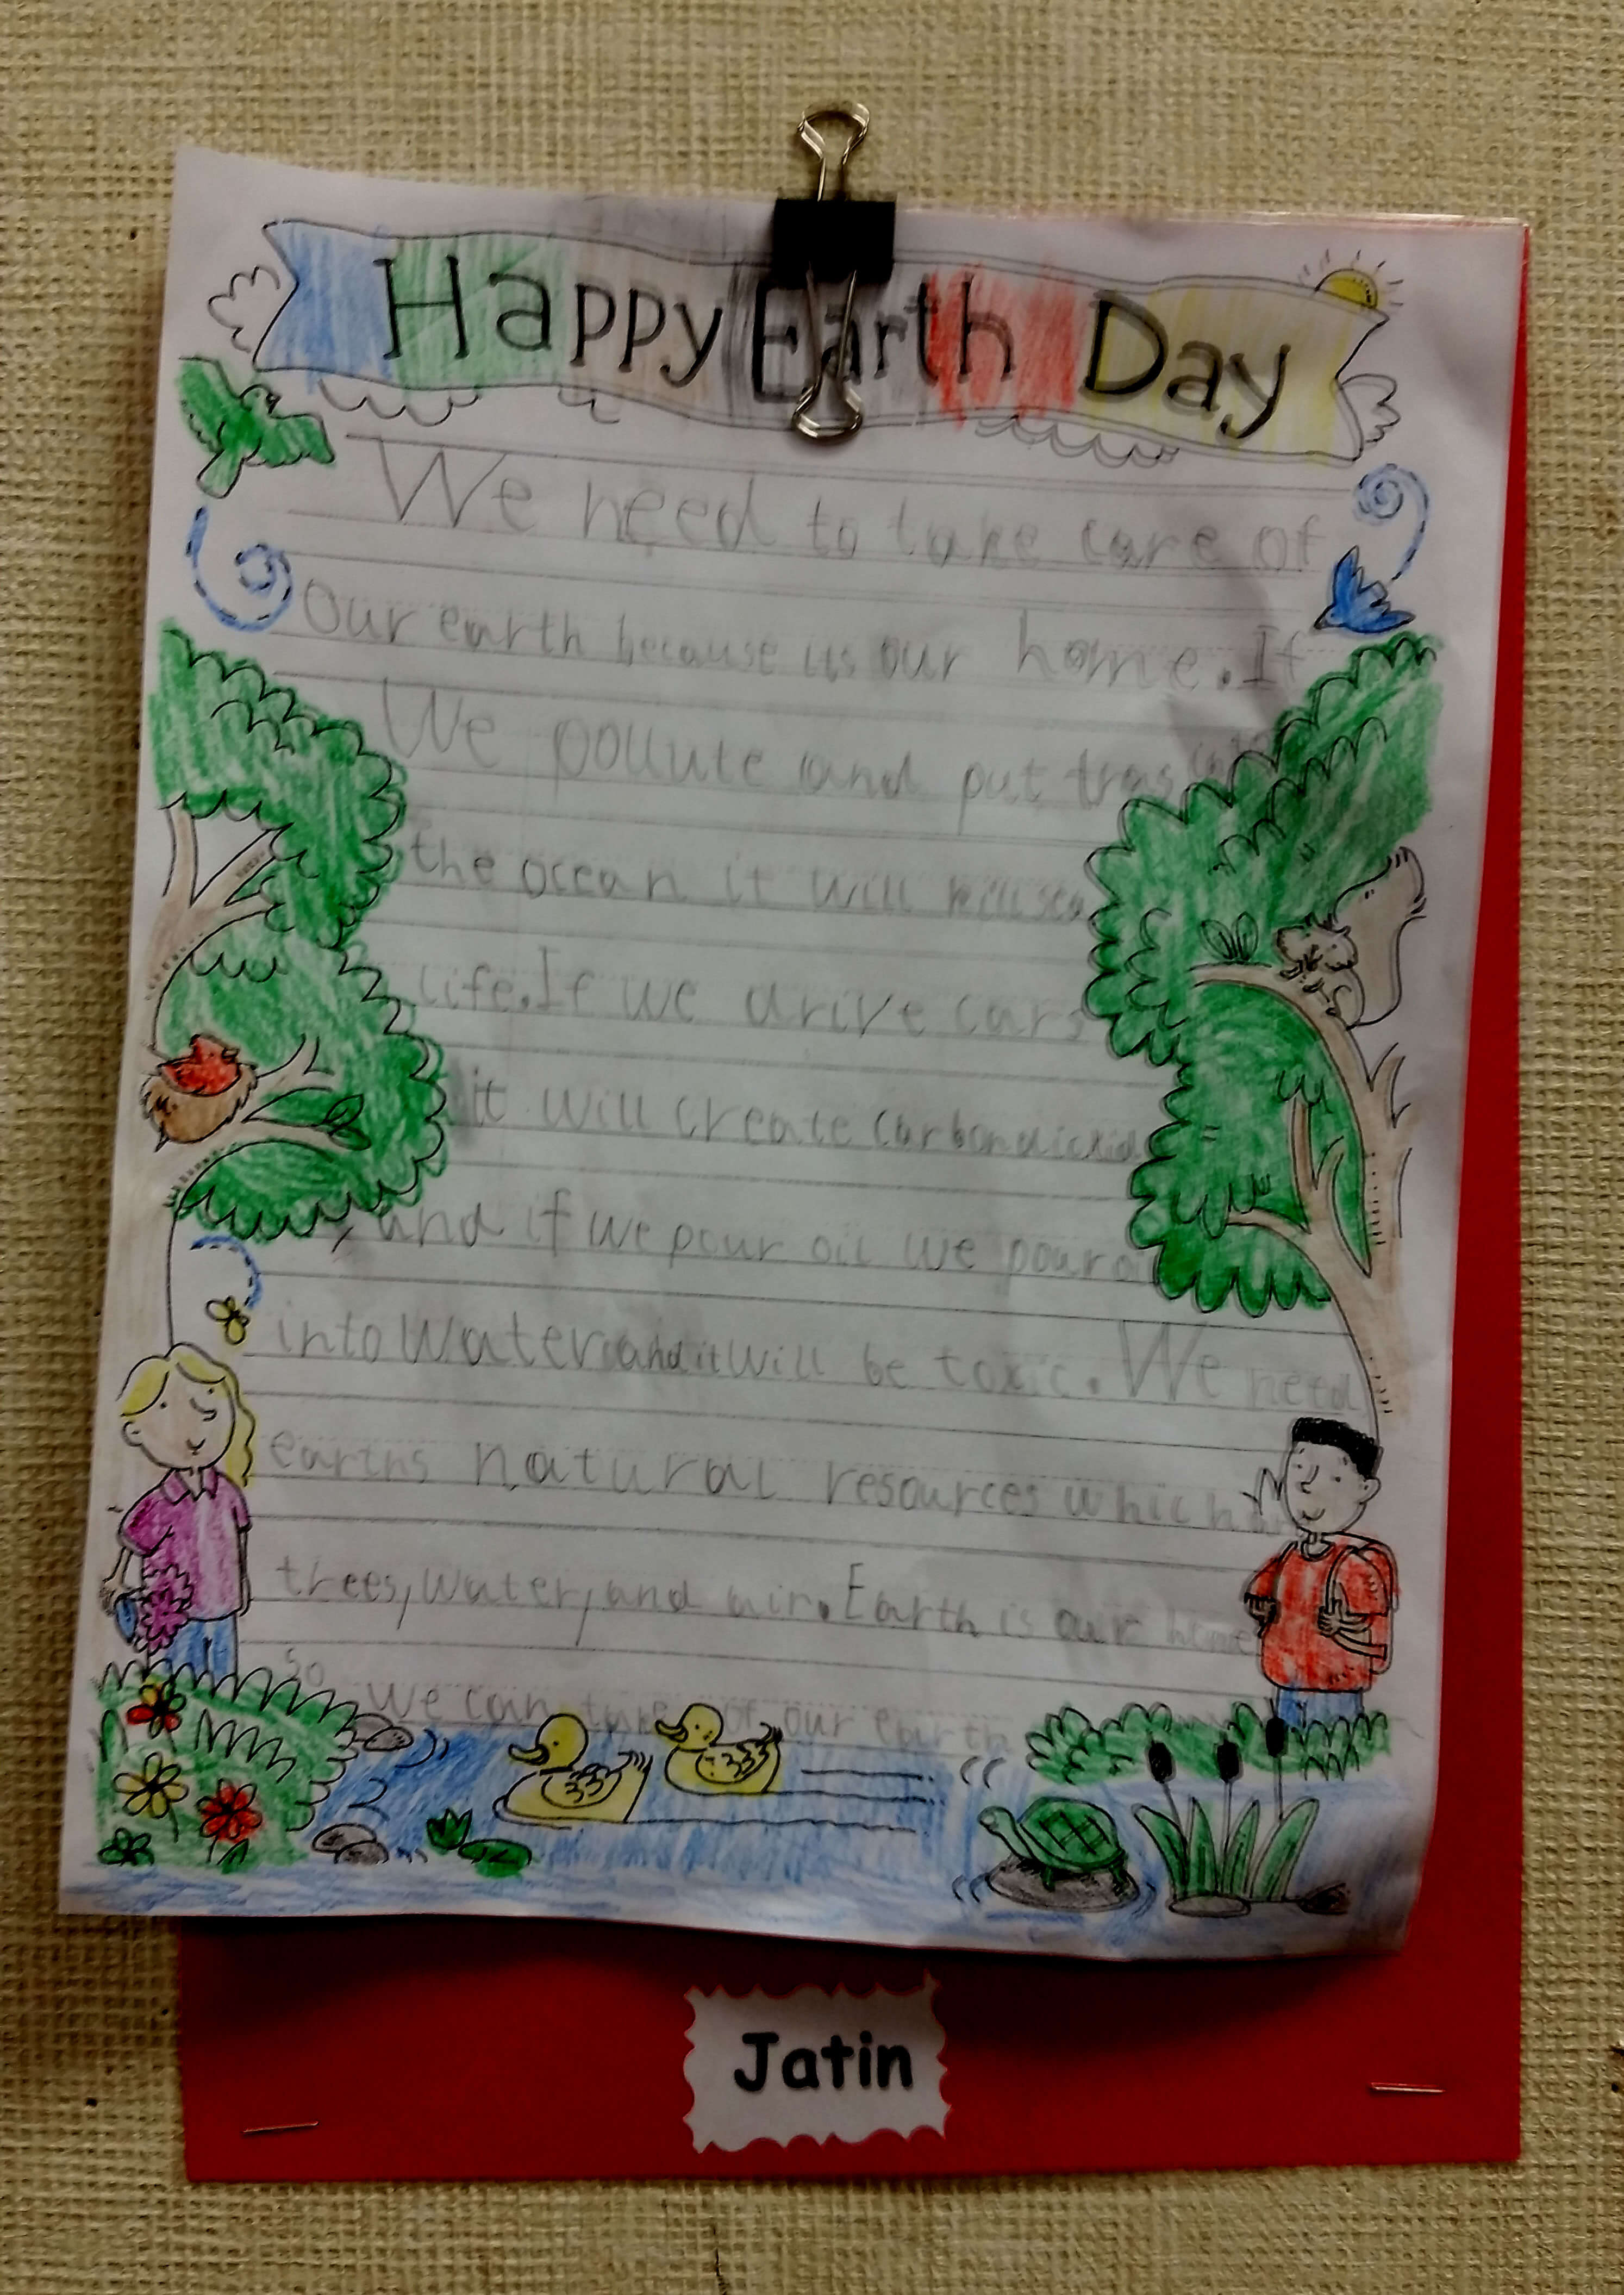 Happy Earth Day
We need to take care of
our earth because its our home. If
We pollute and put tras
the ocean it will kill sea
life. If we drive cars
it will create carbondioxid
, and if we pour oil we pour oi
into Water and it will be toxic. We need
earths natural resources which
trees, water, and air. Earth is our home
so
we can take of our earth
Jatin